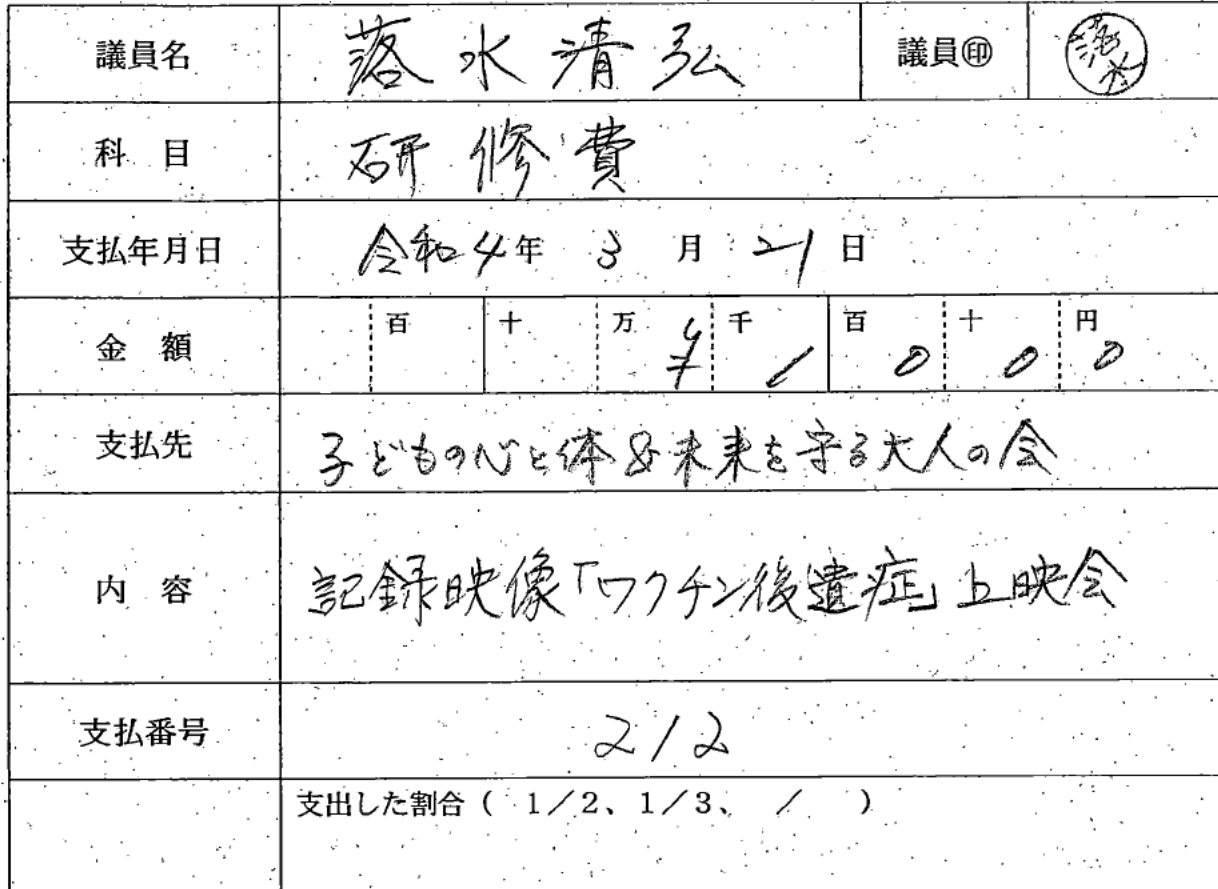 議員名 落水清弘 議員㊞ 落水
科 目 研修費
支払年月日 令和4年 3 月 21 日
金 額 百 十 万 ¥ 千 1 百 0 十 0 円 0
支払先 子どもの心と体&未来を守る大人の会
内 容 記録映像「ワクチン後遺症」上映会
支払番号 212
支出した割合( 1/2、1/3、 / )